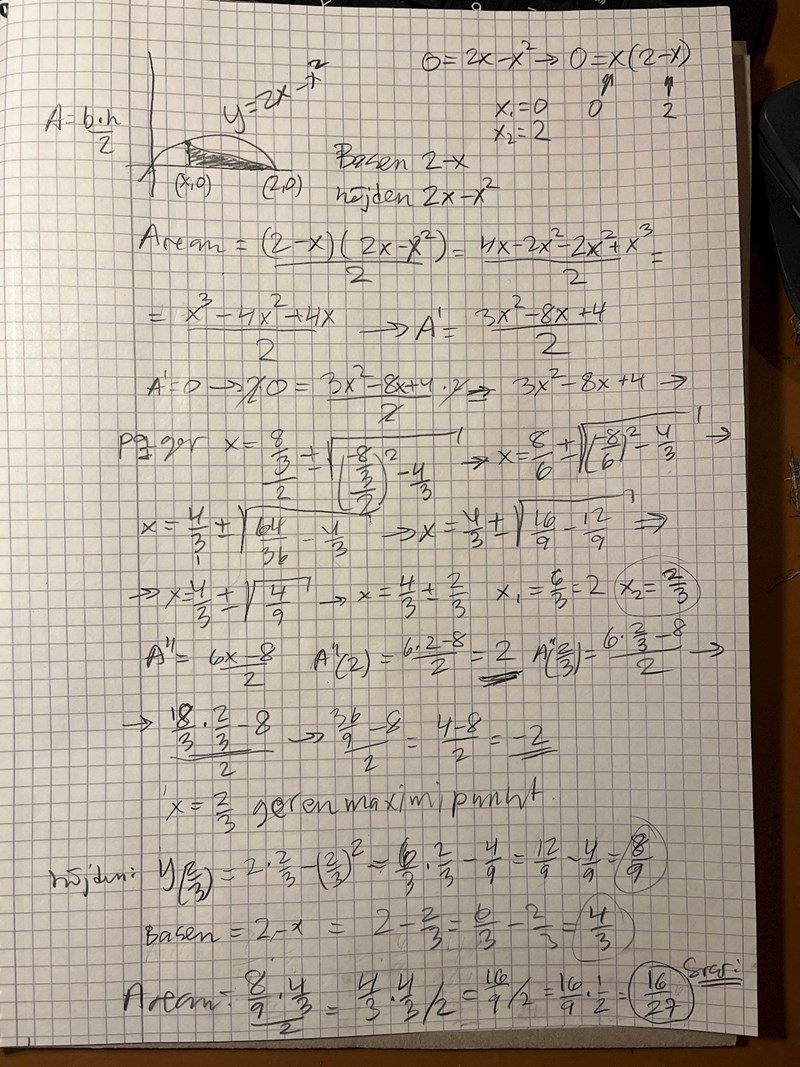 0 = 2x - x² → 0 = x(2-x)
y = 2x - x²
A = b·h/2
x₁ = 0 0 2
x₂ = 2
Basen 2-x
(x,0) (2,0) höjden 2x-x²
Arean = (2-x)(2x-x²)/2 = (4x-2x²-2x²+x³)/2 =
= (x³-4x²+4x)/2 → A' = (3x²-8x+4)/2
A'=0 → 2·0 = (3x²-8x+4)/2 · 2 => 3x²-8x+4 →
pq ger x = (8/3)/2 ± √(((-8/3)/2)² - 4/3) → x = 8/6 ± √((-8/6)² - 4/3) →
x = 4/3 ± √(64/36 - 4/3) → x = 4/3 ± √(16/9 - 12/9) ⇒
→ x = 4/3 ± √(4/9) → x = 4/3 ± 2/3 x₁ = 6/3 = 2 x₂ = 2/3
A'' = (6x-8)/2 A''(2) = (6·2-8)/2 = 2 A''(2/3) = (6·2/3-8)/2 →
→ (18/3 · 2/3 - 8)/2 → (36/9 - 8)/2 = (4-8)/2 = -2
x = 2/3 ger en maximipunkt.
höjden: y(2/3) = 2·2/3 - (2/3)² = 6/3 · 2/3 - 4/9 = 12/9 - 4/9 = 8/9
Basen = 2-x = 2 - 2/3 = 6/3 - 2/3 = 4/3
Svar:
Arean: (8/9 · 4/3)/2 = 4/3 · 4/3 /2 = 16/9 /2 = 16/9 · 1/2 = 16/27